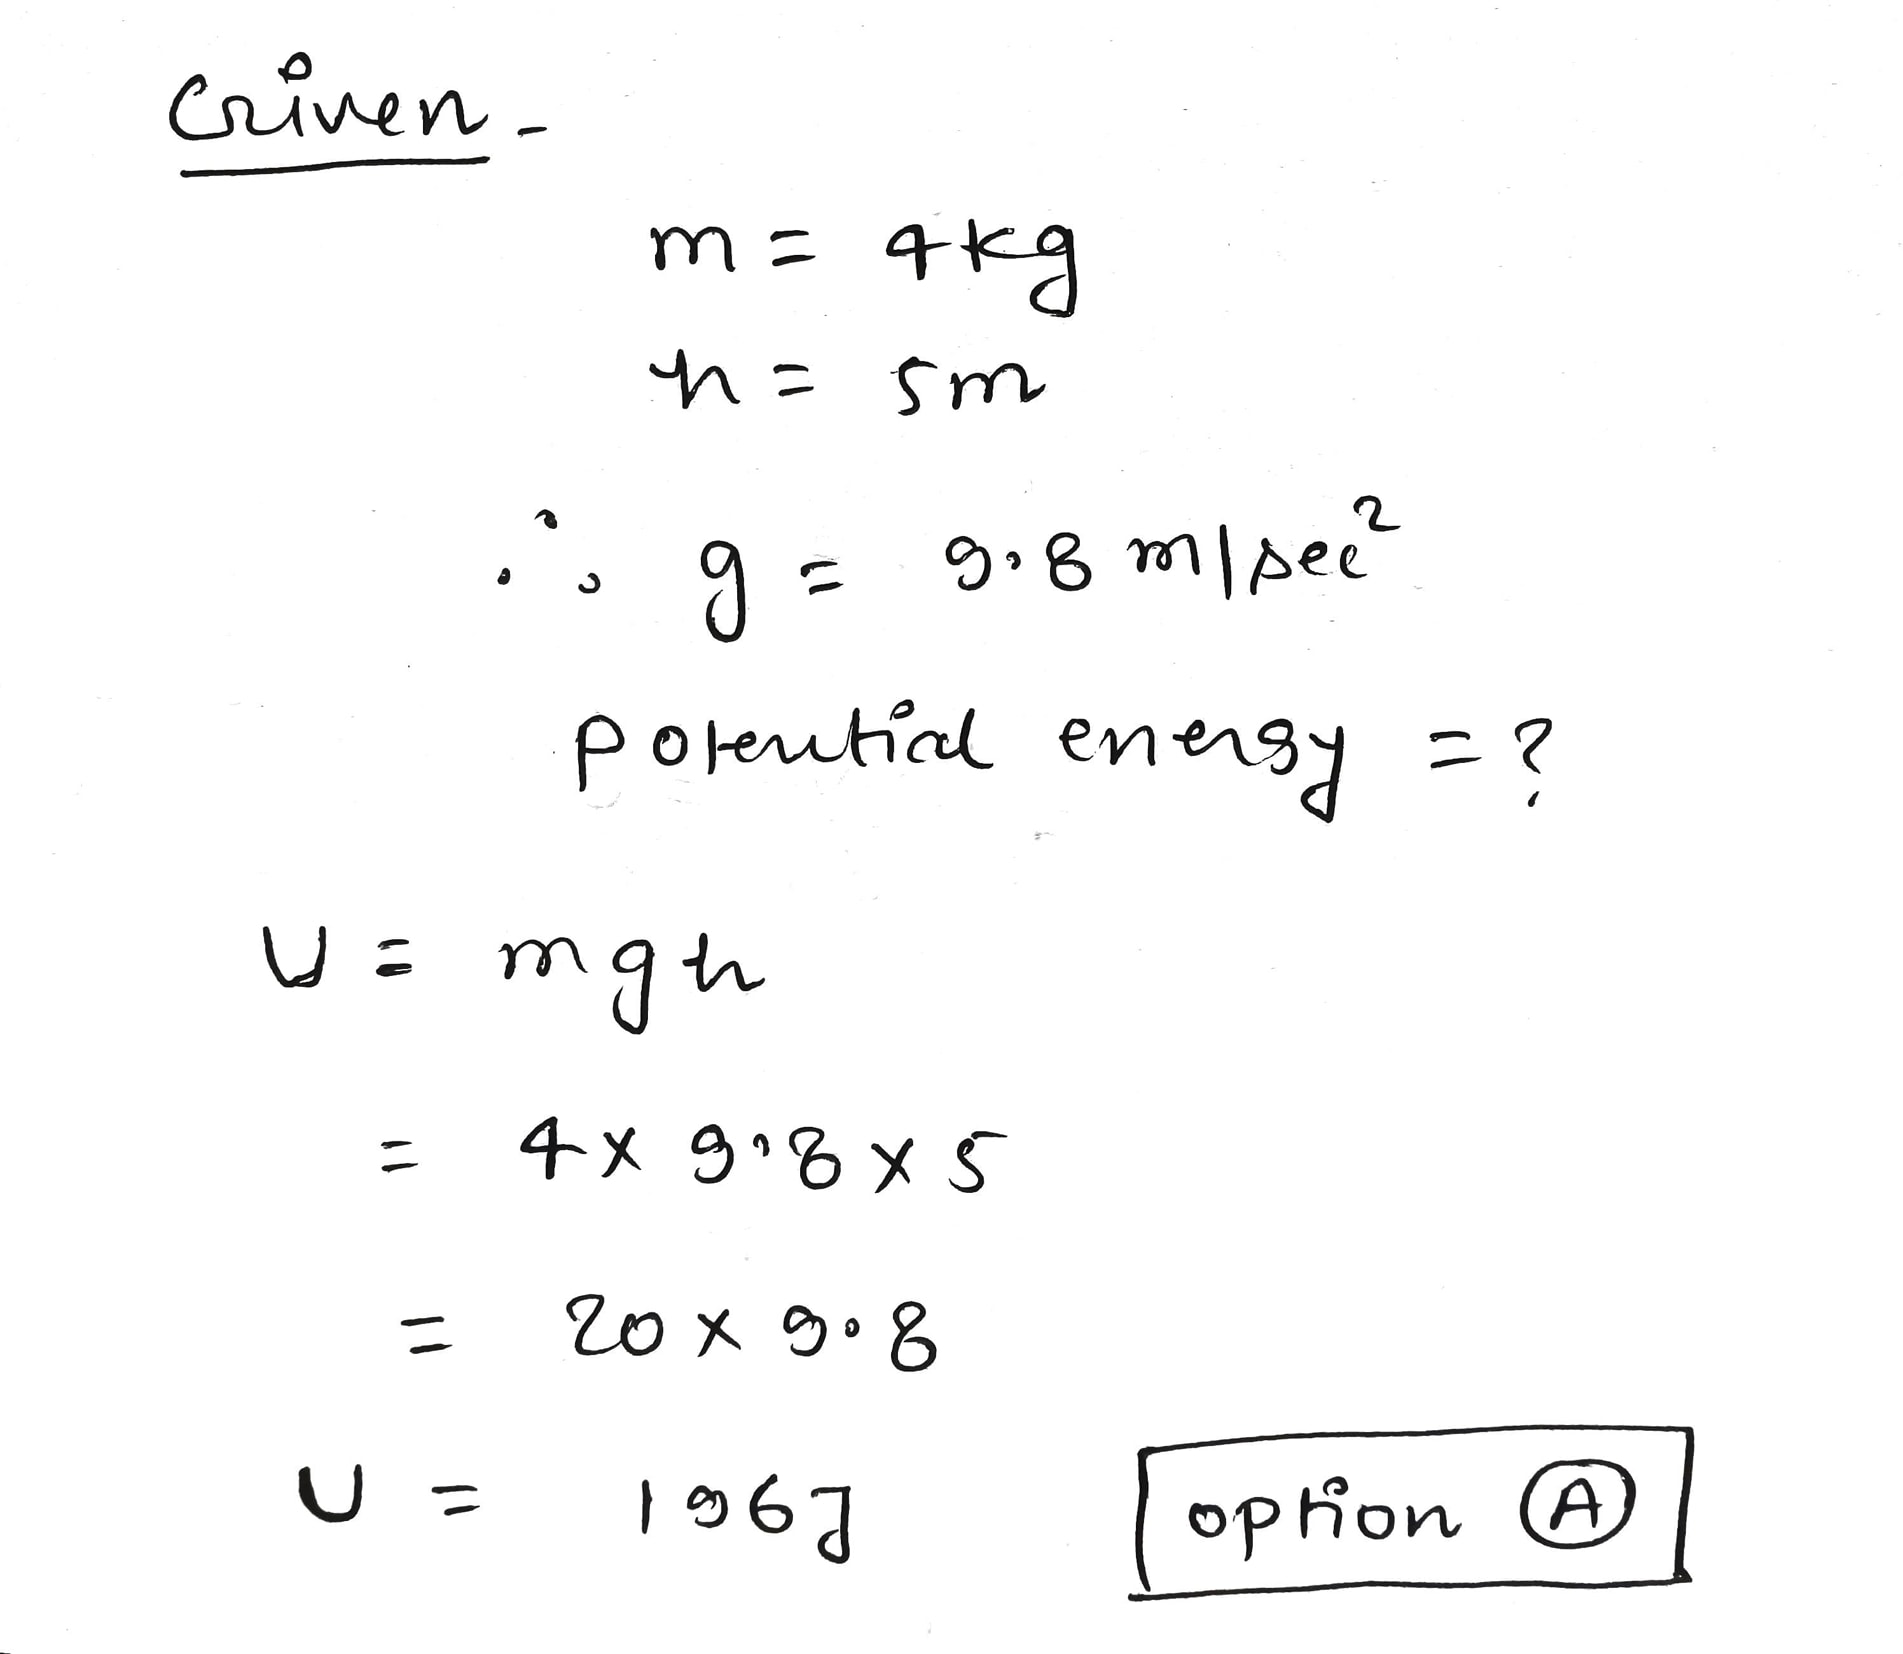 Given -
m = 4kg
h = 5m
∴ g = 9.8 m/sec²
potential energy = ?
U = mgh
= 4 x 9.8 x 5
= 20 x 9.8
U = 196J
option Ⓐ